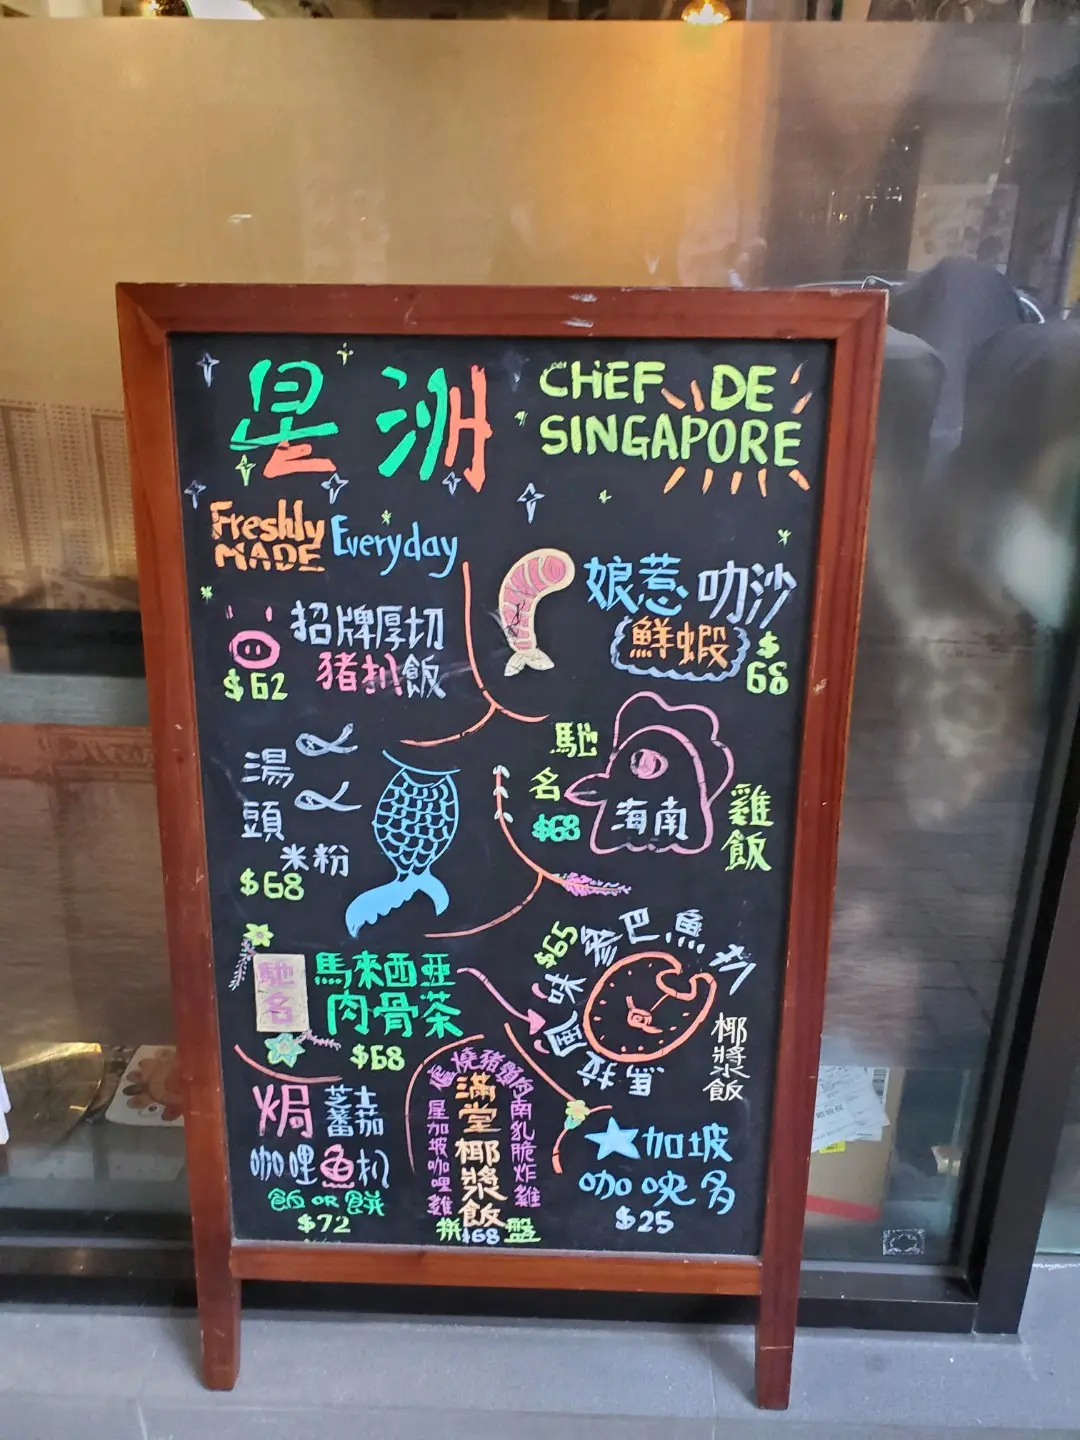 星洲
CHEF DE
SINGAPORE
Freshly
MADE
Everyday
招牌厚切
豬扒飯
$62
娘惹叻沙
鮮蝦
$68
湯
頭
米粉
$68
馳
名
海南
雞
飯
$68
馳
名
馬來西亞
肉骨茶
$68
馬拉風味參巴魚扒
椰漿飯
$65
焗芝士
蕃茄
咖哩魚扒
飯 OR 餅
$72
燒豬頸肉
南乳脆炸雞
星加坡咖哩雞
滿堂椰漿飯
拼盤
$68
加坡
咖央多
$25